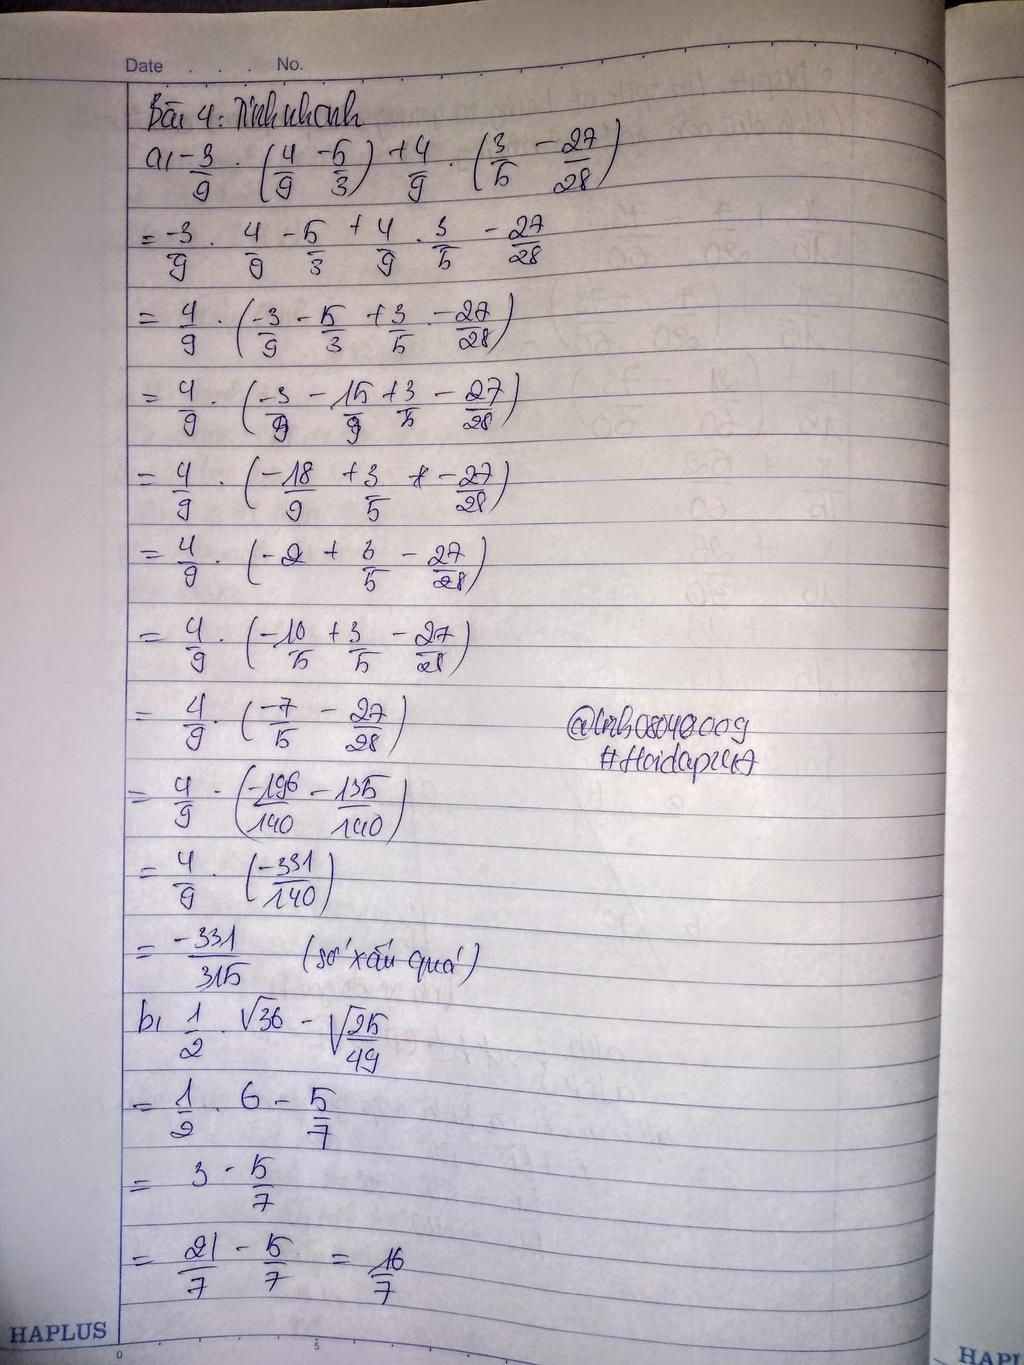 Date . . . No.
Bài 4: Tính nhanh
a, -3/9 . (4/9 - 5/3) + 4/9 . (3/5 - 27/28)
= -3/9 . 4/9 - 5/3 + 4/9 . 3/5 - 27/28
= 4/9 . (-3/9 - 5/3 + 3/5 - 27/28)
= 4/9 . (-3/9 - 15/9 + 3/5 - 27/28)
= 4/9 . (-18/9 + 3/5 - 27/28)
= 4/9 . (-2 + 3/5 - 27/28)
= 4/9 . (-10/5 + 3/5 - 27/28)
= 4/9 . (-7/5 - 27/28)
= 4/9 . (-196/140 - 135/140)
= 4/9 . (-331/140)
= -331/315 (số xấu quá)
b, 1/2 . √36 - √25/49
= 1/2 . 6 - 5/7
= 3 - 5/7
= 21/7 - 5/7 = 16/7
HAPLUS
0 5